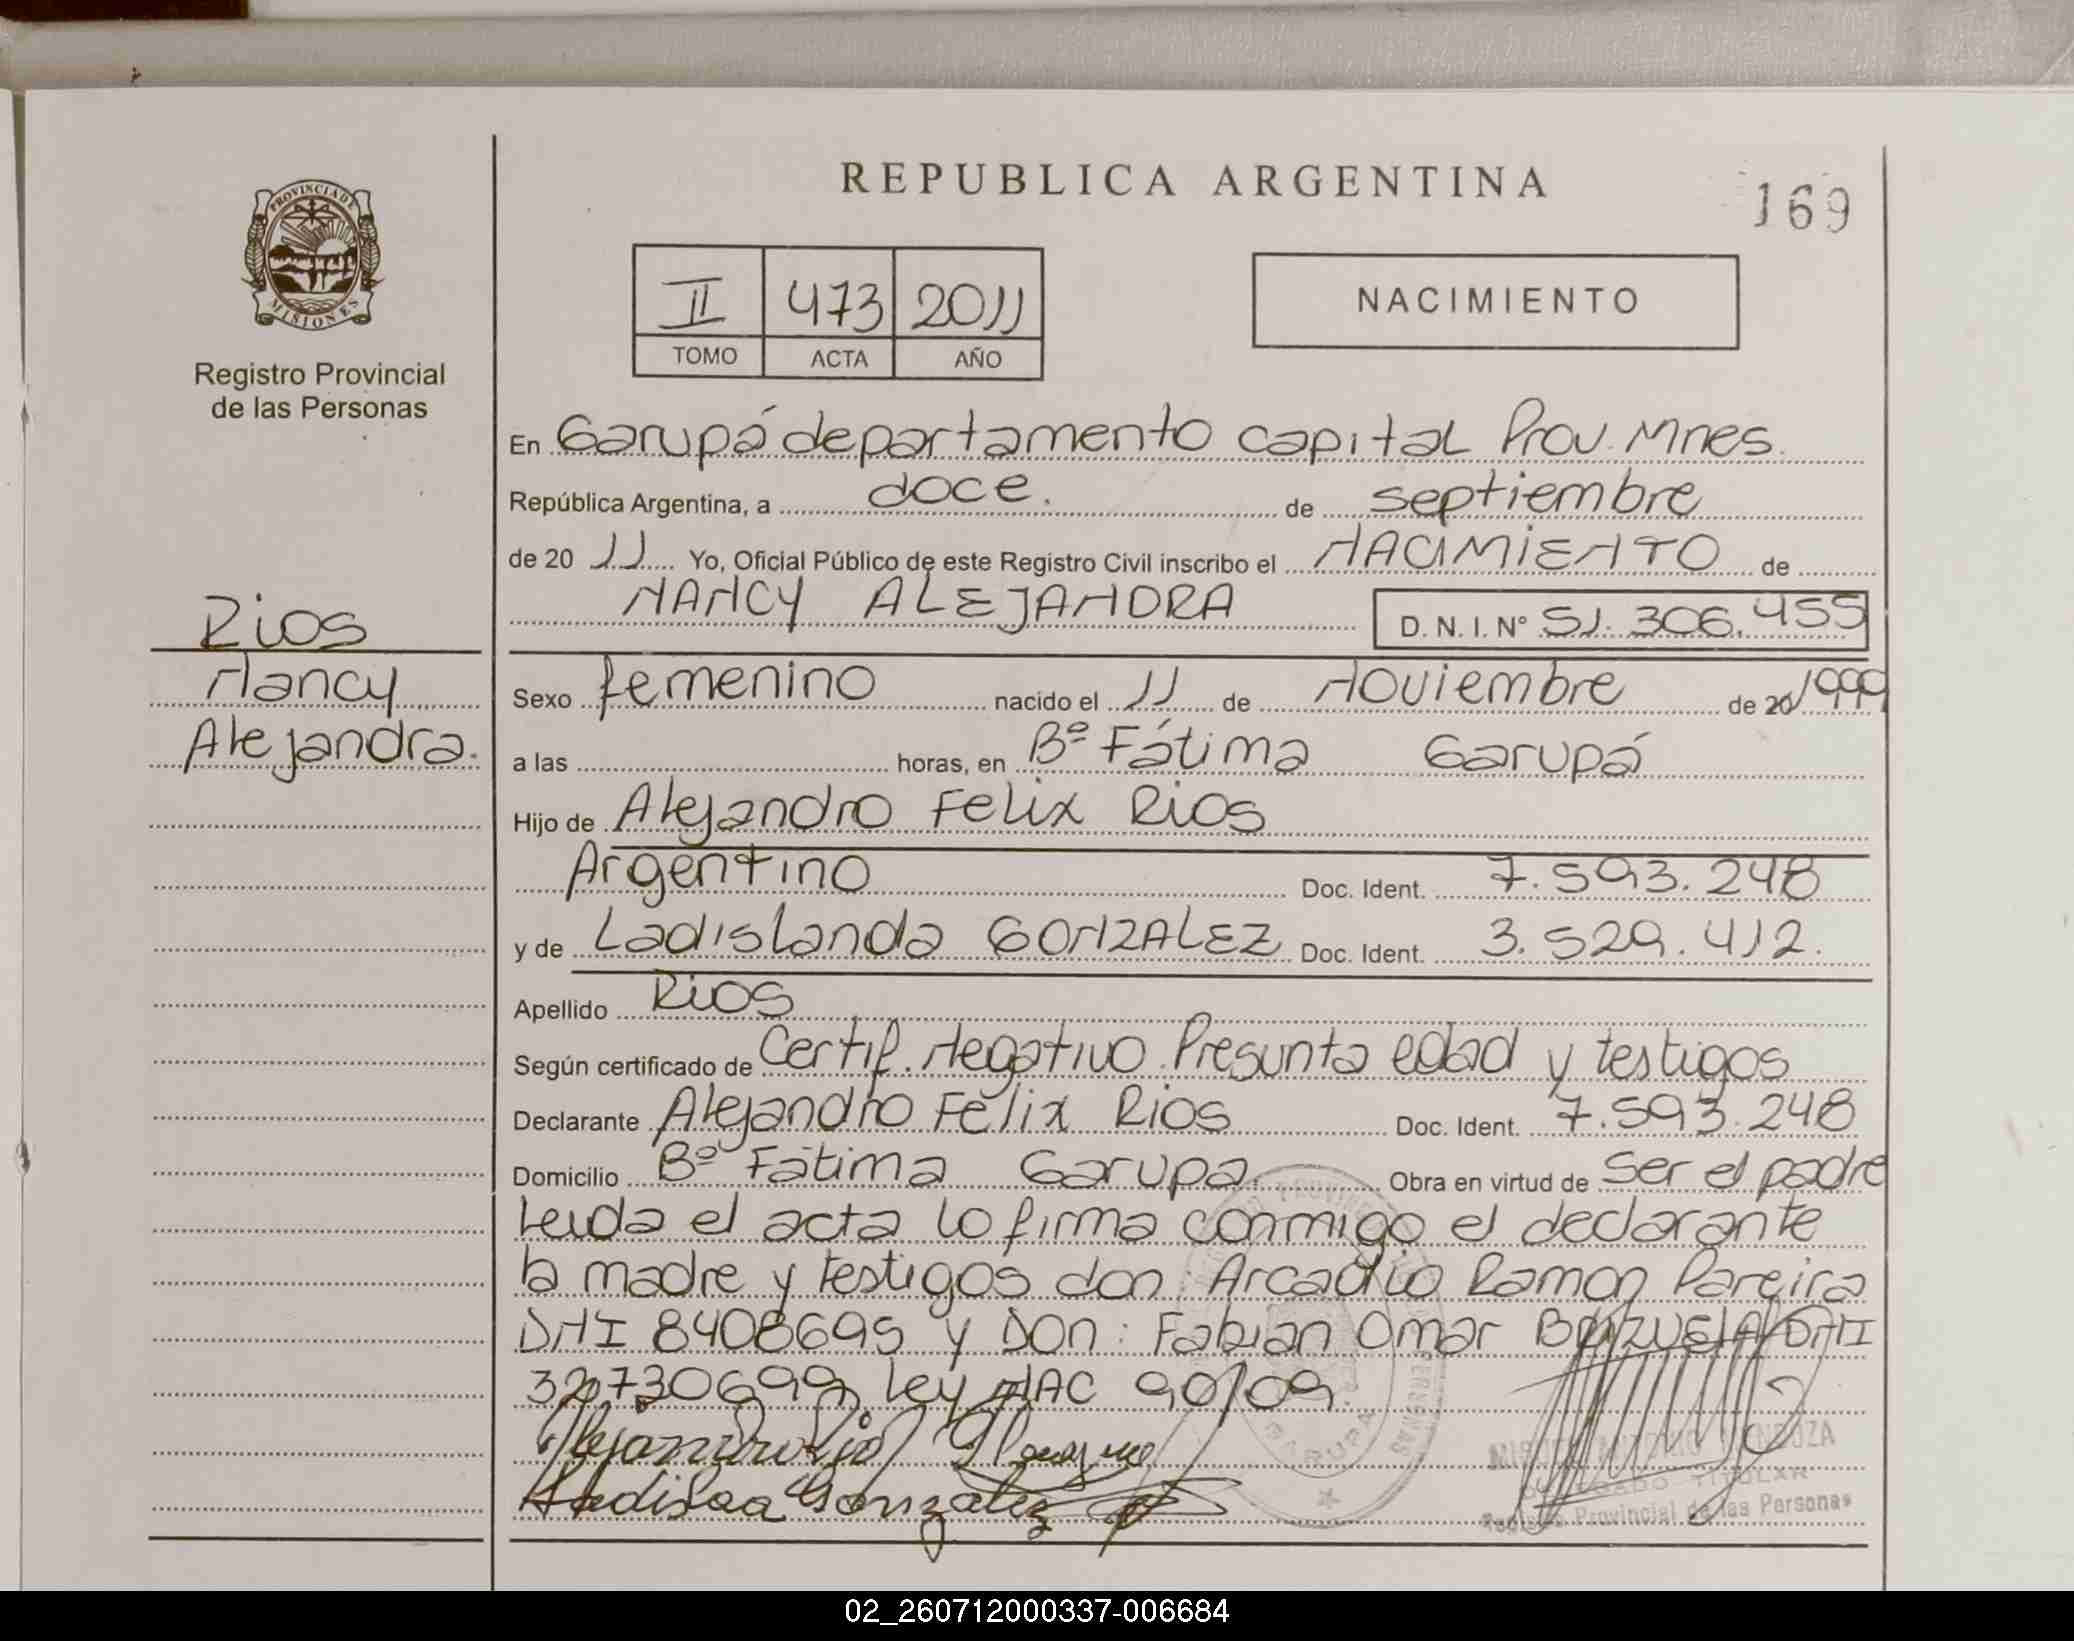 REPUBLICA ARGENTINA
169
PROVINCIA DE
MISIONES
Registro Provincial
de las Personas
II 473 2011
TOMO ACTA AÑO
NACIMIENTO
En Garupá departamento capital Prov. Mnes.
República Argentina, a doce. de septiembre
de 20 11 Yo, Oficial Público de este Registro Civil inscribo el NACIMIENTO de
NANCY ALEJANDRA D. N. I. Nº 51. 306. 455
Rios
Nancy
Alejandra.
Sexo femenino nacido el 11 de Noviembre de 20 1999
a las horas, en Bº Fátima Garupá
Hijo de Alejandro Felix Rios
Argentino Doc. Ident. 7.593.248
y de Ladislanda GONZALEZ Doc. Ident. 3.529.412.
Apellido Rios
Según certificado de Certif. Negativo Presunta edad y testigos
Declarante Alejandro Felix Rios Doc. Ident. 7.593.248
Domicilio Bº Fatima Garupa. Obra en virtud de ser el padre
Leida el acta lo firma conmigo el declarante
la madre y testigos don Arcadio Ramon Pareira
DNI 8408695 y DON: Fabian Omar BRIZUELA DNI
32730699 Ley NAC 90/09.
Alejandro Rios
Gonzalez
GARUPA
MENDOZA
TITULAR
Registro Provincial de las Personas
02_260712000337-006684